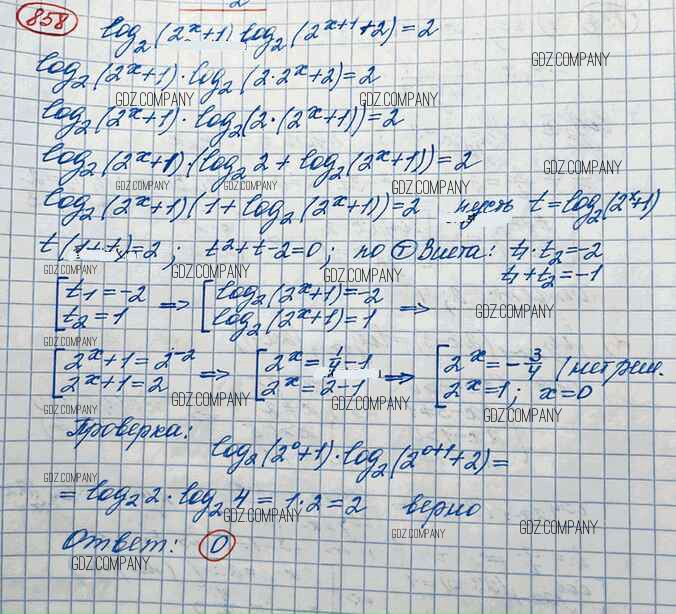 858
log₂(2ˣ+1) log₂(2ˣ⁺¹+2)=2
GDZ.COMPANY
log₂(2ˣ+1)·log₂(2·2ˣ+2)=2
GDZ.COMPANY GDZ.COMPANY
log₂(2ˣ+1)·log₂(2·(2ˣ+1))=2
log₂(2ˣ+1)·(log₂2+log₂(2ˣ+1))=2
GDZ.COMPANY
GDZ.COMPANY GDZ.COMPANY GDZ.COMPANY
log₂(2ˣ+1)(1+log₂(2ˣ+1))=2 пусть t=log₂(2ˣ+1)
t(1+t)=2; t²+t-2=0; по Т Виета: t₁·t₂=-2
GDZ.COMPANY GDZ.COMPANY GDZ.COMPANY t₁+t₂=-1
[t₁=-2 => [log₂(2ˣ+1)=-2 =>
t₂=1 log₂(2ˣ+1)=1
GDZ.COMPANY GDZ.COMPANY GDZ.COMPANY
[2ˣ+1=2⁻² => [2ˣ=1/4-1 => [2ˣ=-3/4 (нет реш.
2ˣ+1=2 2ˣ=2-1 2ˣ=1; x=0
GDZ.COMPANY GDZ.COMPANY GDZ.COMPANY GDZ.COMPANY
Проверка:
log₂(2⁰+1)·log₂(2⁰⁺¹+2)=
GDZ.COMPANY
=log₂2·log₂4=1·2=2 верно
GDZ.COMPANY GDZ.COMPANY GDZ.COMPANY
Ответ: 0
GDZ.COMPANY